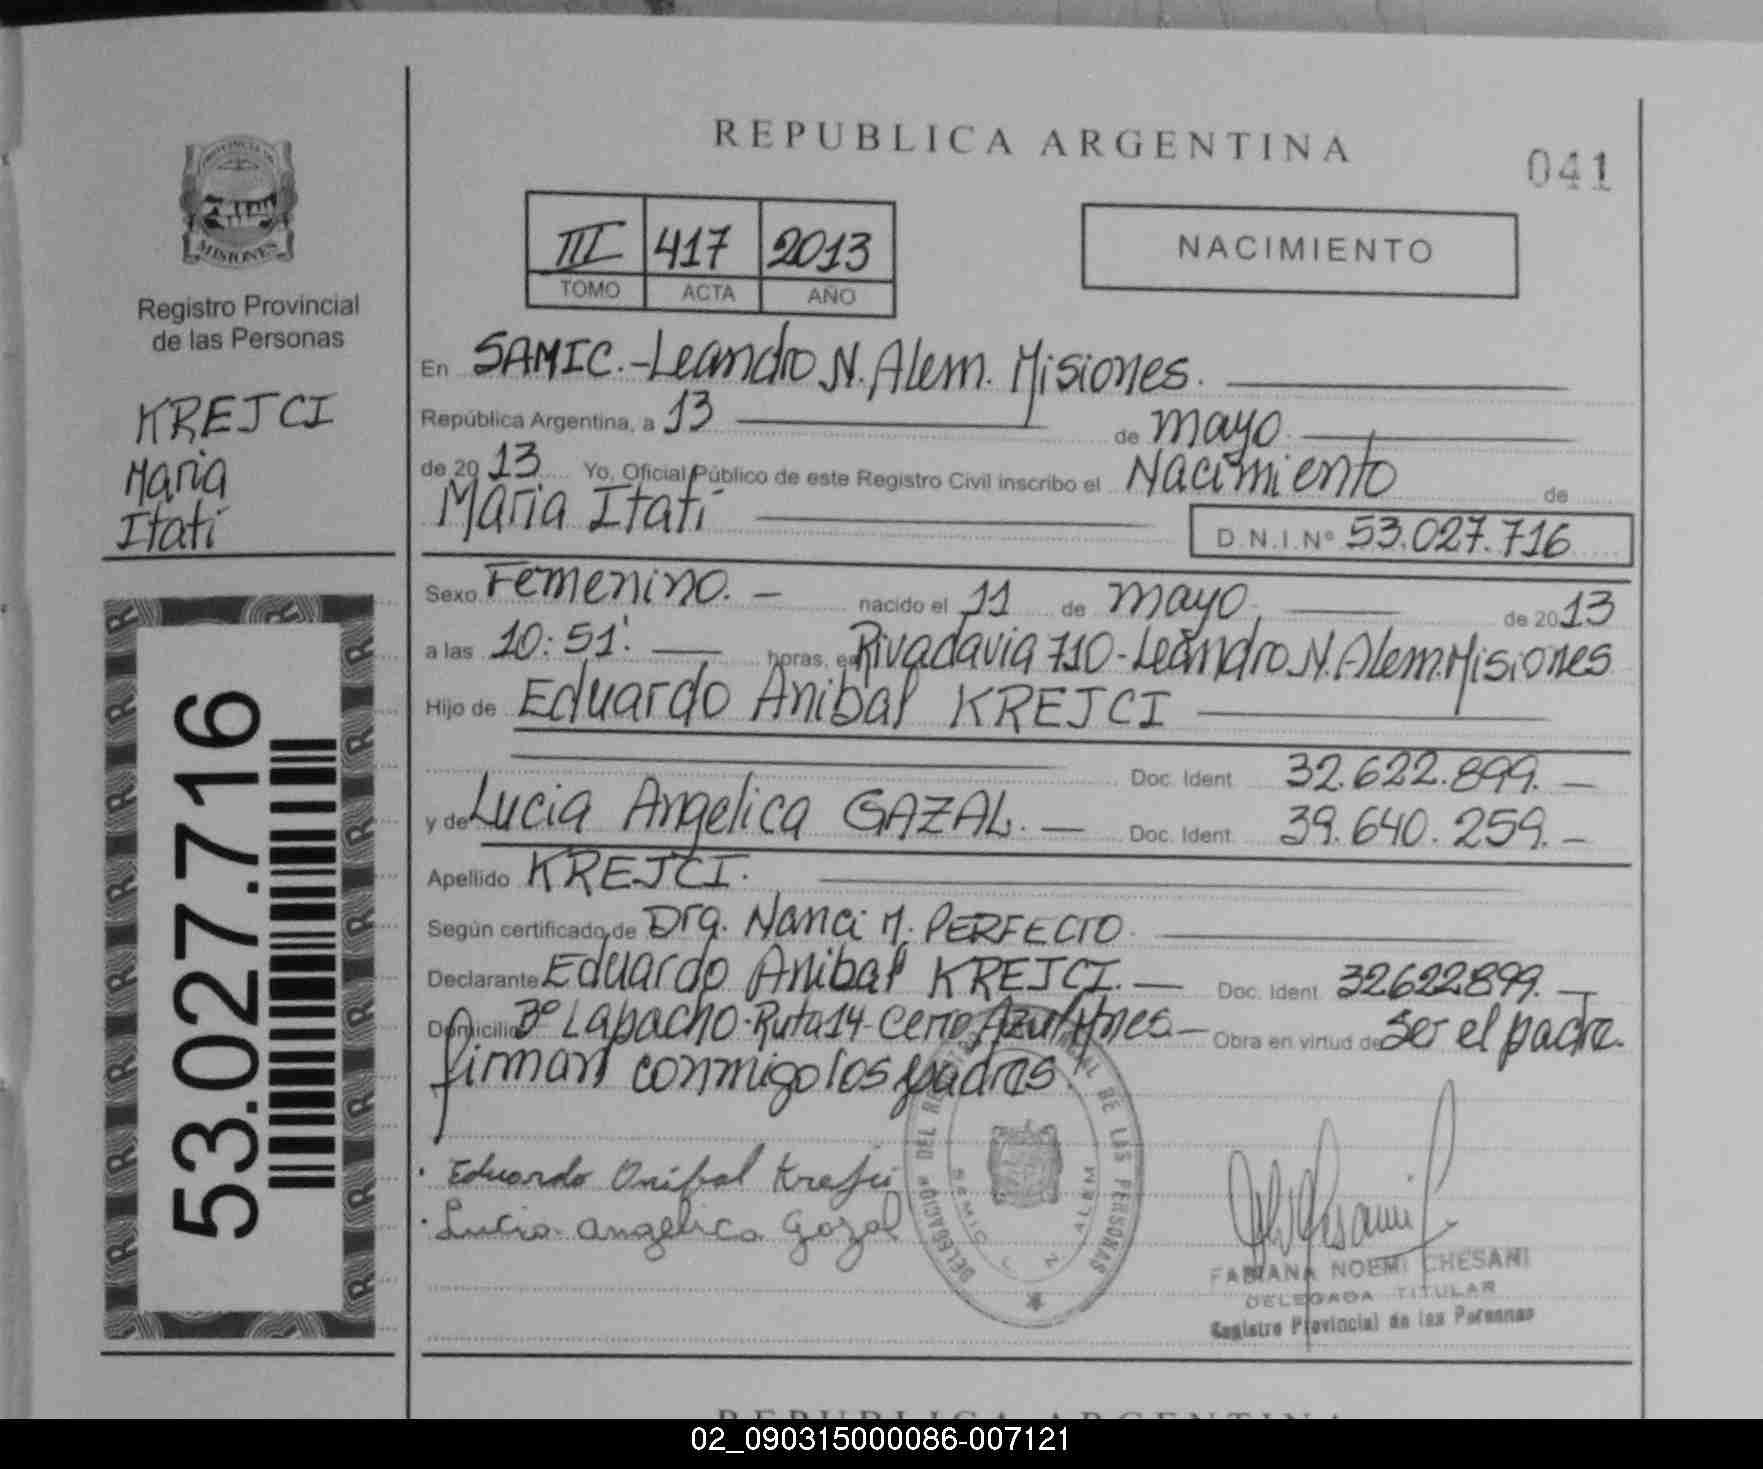 REPUBLICA ARGENTINA
041
PROVINCIA DE
MISIONES
Registro Provincial
de las Personas
KREJCI
Maria
Itatí
53.027.716
III 417 2013
TOMO ACTA AÑO
NACIMIENTO
En SAMIC.-Leandro N. Alem. Misiones.
República Argentina, a 13 de mayo.
de 2013 Yo, Oficial Público de este Registro Civil inscribo el Nacimiento de
Maria Itatí
D.N.I.Nº 53.027.716
Sexo Femenino. - nacido el 11 de mayo. de 2013
a las 10:51'. horas, en Rivadavia 710-Leandro N. Alem. Misiones
Hijo de Eduardo Anibal KREJCI
Doc. Ident. 32.622.899.-
y de Lucia Angelica GAZAL.- Doc. Ident. 39.640.259.-
Apellido KREJCI.
Según certificado de Dra. Nanci M. PERFECTO.
Declarante Eduardo Anibal KREJCI.- Doc. Ident. 32622899.-
Domicilio 3º Lapacho-Ruta 14-Cerro Azul Mnes.- Obra en virtud de Ser el padre.
firman conmigo los padres.
Eduardo Anibal Krejci
Lucia Angelica Gazal
DELEGACIÓN DEL REGISTRO PROVINCIAL DE LAS PERSONAS
SAMIC L. N. ALEM
FABIANA NOEMI CHESANI
DELEGADA TITULAR
Registro Provincial de las Personas
REPUBLICA ARGENTINA
02_090315000086-007121